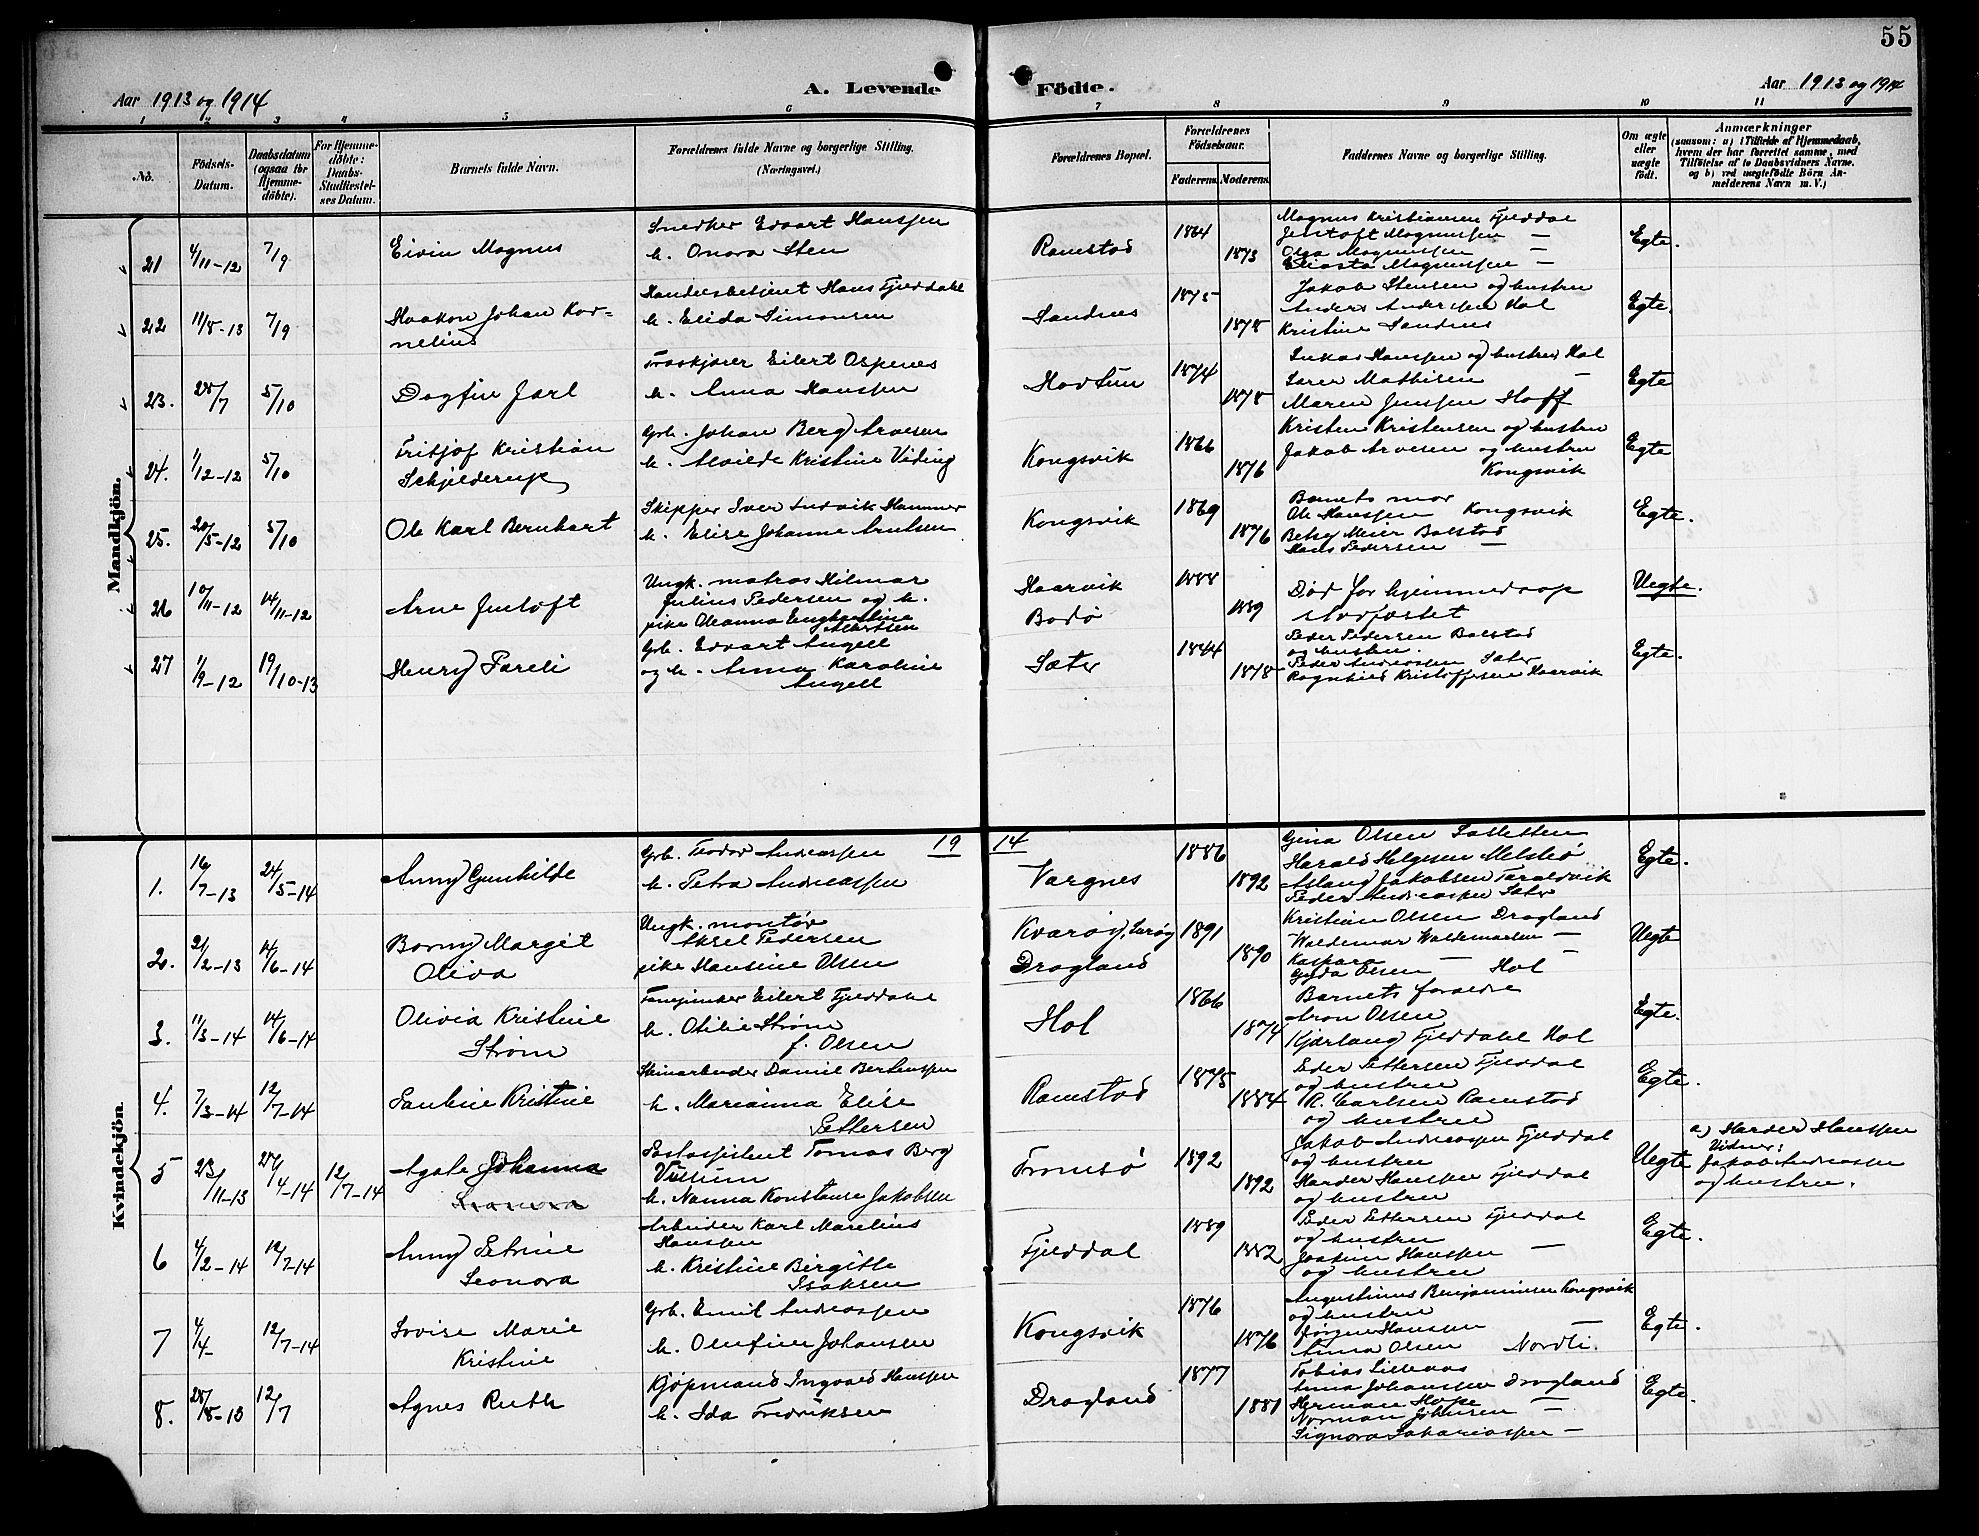 55
Aar 1913 og 1914
A. Levende
Födte.
Aar 1913 og 1914
1 2 3 4 5 6 7 8 9 10 11
No.
Födsels-
Datum.
Daabsdatum
(ogsaa for
Hjemme-
döbte).
For Hjemme-
döbte:
Daabs-
Stadfæstel-
ses Datum.
Barnets fulde Navn.
Forældrenes fulde Navne og borgerlige Stilling.
(Næringsvei.)
Forældrenes Bopæl.
Forældrenes
Födselsaar.
Faderens. Moderens.
Faddernes Navne og borgerlige Stilling.
Om ægte
eller
uægte
födt.
Anmærkninger
(saasom: a) i Tilfælde af Hjemmedaab,
hvem der har forrettet samme, med
Tilföielse af to Daabsvidners Navne.
og b) ved uægtefödte Börn An-
melderens Navn m. V.)
Mandkjön.
21 4/11-12 7/9 Eivin Magnus
Snedker Edvart Hanssen
h. Onora Sten
Ramstad 1864 1873
Magnus Kristiansen Fjelddal
Jentoft Magnussen —
Olga Magnussen
Eliasta Magnussen —
Egte.
22 11/8-13 7/9 Haakon Johan Kor-
nelius
Handelsbetjent Hans Fjelddahl
h. Elida Simonsen
Sandnes 1875 1878
Jakob Stensen og hustru
Anders Anderssen Hol
Kristine Sandnes
Egte.
23. 28/7 5/10 Dagfin Jarl
Eilert Ospenes
h. Anna Hanssen
1874 1878
Lukas Hanssen og hustru Hol
Søren Mathisen —
Maren Jenssen Hoff
Egte
24. 1/12-12 5/10 Fritjof Kristian
Schjelderup
Grb. Johan Berg Arvesen
h. Alvilde Kristine Viding
Kongsvik 1866 1876
Kristen Kristensen og hustru
Jakob Arvesen og hustru
Kongsvik
Egte
25. 20/5-12 5/10 Ole Karl Bernhart
Skipper Iver Ludvik Hammer
h. Elise Johanne Arntsen
Kongsvik 1869 1876
Barnets mor
Ole Hanssen Kongsvik
Betsy Meier Bolstad
Hans Pedersen —
Egte.
26 10/11-12 14/11-12 Arne Jentoft
Ungk. matros Hilmar
Julius Pedersen og h.
pike Oleanna Engborline
Albertsen
Haarvik
Bodø
1888 1889
Død før hjemmedaap
stadfæstet
Uegte.
27 1/9-12 19/10-13 Henry Pareli
Grb. Edvart Angell
og h. Anna Karoline
Angell
Sæter 1844 1878
Peder Pedersen Bolstad
og hustru.
Peder Andreassen Sæter
Ragnhild Kristoffersen Haarvik
Egte.
Kvindekjön.
19 14
1. 16/7-13 24/5-14 Anny Gunhilde
Grb. Teodor Andreassen
h. Petra Andreassen
Vargnes 1886 1892
Gina Olsen
Harald Helgesen Melsbø
Aslaug Jakobsen Taraldsvik
Peder Andreassen Sæter
Egte.
2. 21/2-13 14/6-14 Borny Margit
Oliva
Ungk. montør
Aksel Pedersen
pike Hansine Olsen
Kvarøy, Lurøy
Dragland
1891 1890
Kristian Olsen Dragland
Waldemar Waldemarsen —
Kaspara — —
Gyda Olsen Hol
Uegte
3. 11/3-14 14/6-14 Olivia Kristine
Strøm
Eilert Fjelddahl
h. Otilie Strøm
f. Olsen
Hol 1866 1874
Barnets forældre
Aron Olsen
Kjærlaug Fjelddahl Hol
Egte.
4. 7/3-14 12/7-14 Pauline Kristine
Stenarbeider Daniel Berthenssen
h. Marianna Elise
Pettersen
Ramstad 1875 1884
Peder Pettersen Fjelddal
og hustru
R. Carlsen Ramstad
og hustru
Egte.
5 23/11-13 27/4-14 12/7-14 Agate Johanna
Leonora
Postaspirent Tomas Berg
h. Nanna Konstanse Jakobsen
Tromsø 1892 1892
Jakob Andreassen Fjelddal
og hustru
Harder Hanssen Fjelddal
og hustru
Uegte
a) Harder Hanssen
Vidner:
Jakob Andreassen
og hustru.
6 4/2-14 12/7-14 Anny Petrine
Leonora
Arbeider Karl Marelius
Hanssen
h. Kristine Birgitte
Isaksen
Fjelddal 1889 1882
Peder Pettersen Fjelddal
og hustru
Joakim Hanssen —
og hustru
Egte.
7 4/4- 12/7-14 Lovise Marie
Kristine
Grb. Emil Andreassen
h. Olufine Johansen
Kongsvik 1876 1876
Augustinus Benjaminsen Kongsvik
og hustru
Jørgen Hanssen —
Anna Olsen Nordli.
Egte.
8. 28/8-13 12/7 Agnes Ruth
Kjøpmand Ingvald Hanssen
h. Ida Fredriksen
Dragland 1877 1881
Tobias Lillevas
Anna Johanssen Dragland
Herman Hope —
Norman Johnsen —
Signora Sakariassen —
Egte.